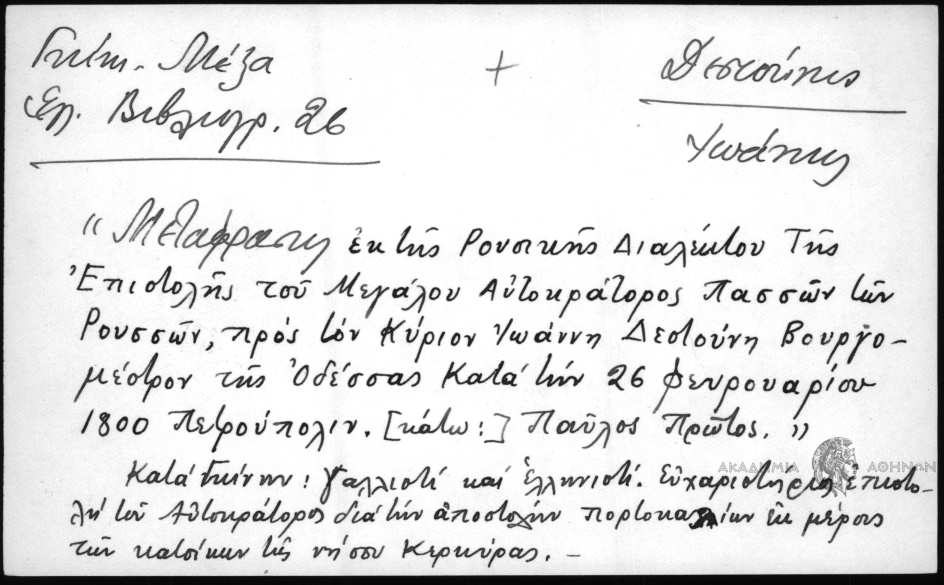 Γκίνη - Μέξα
Ελ. Βιβλιογρ. 26
+
Δεστούνης
Ἰωάννης
"Μετάφρασις ἐκ τῆς Ρουσικῆς Διαλέκτου Τῆς
Ἐπιστολῆς τοῦ Μεγάλου Αὐτοκράτορος Πασσῶν τῶν
Ρουσσῶν, πρὸς τὸν Κύριον Ἰωάννη Δεστούνη Βουργο-
μέστρον τῆς Ὀδέσσας Κατὰ τὴν 26 Φευρουαρίου
1800 Πετρούπολιν. [κάτω:] Παῦλος Πρῶτος."
ΑΚΑΔΗΜΙΑ ΑΘΗΝΩΝ
Κατὰ Γκίνην: γαλλιστί καὶ ἑλληνιστί. Εὐχαριστήριος ἐπιστο-
λὴ τοῦ Αὐτοκράτορος διὰ τὴν ἀποστολὴν πορτοκαλλίων ἐκ μέρους
τῶν κατοίκων τῆς νήσου Κερκύρας. -